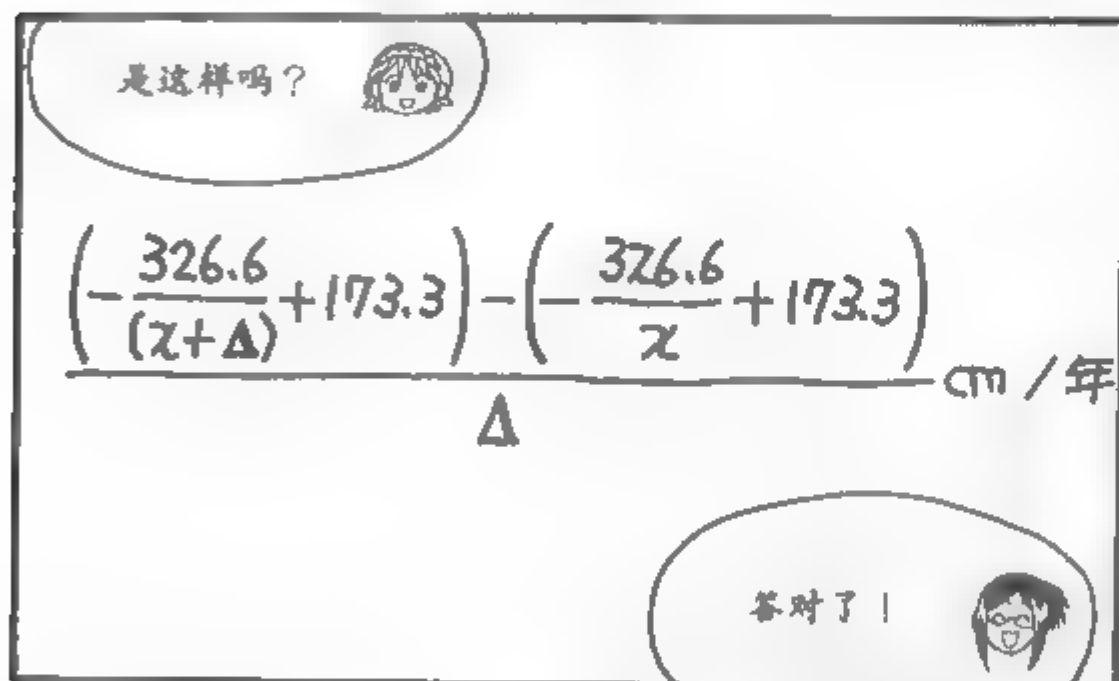 是这样吗？
(-326.6/(x+Δ)+173.3)-(-326.6/x+173.3)
/Δ cm/年
答对了！